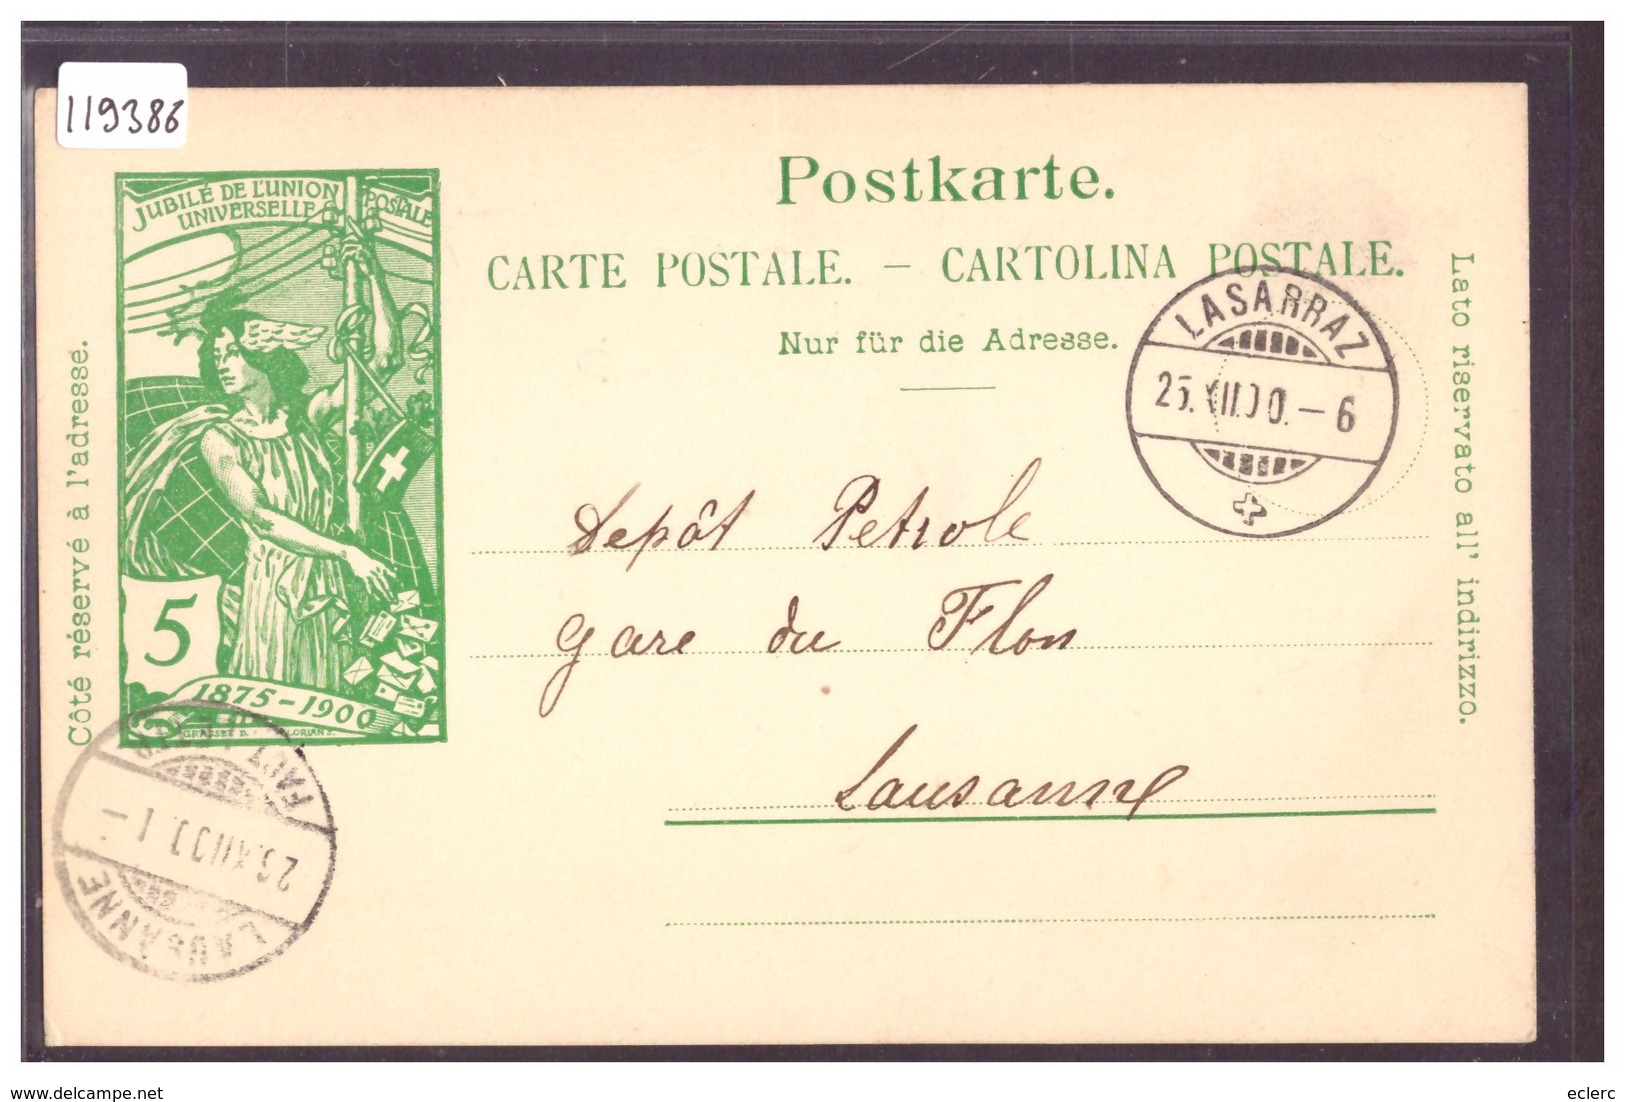 119386
JUBILÉ DE L'UNION POSTALE
UNIVERSELLE
Postkarte.
CARTE POSTALE. – CARTOLINA POSTALE.
Nur für die Adresse.
Côté réservé à l'adresse.
Lato riservato all' indirizzo.
LASARRAZ
25. XII.00. – 6
Depôt Petrole
gare du Flon
Lausanne
5
1875-1900
GRASSET D.
LAUSANNE
eclerc
119386